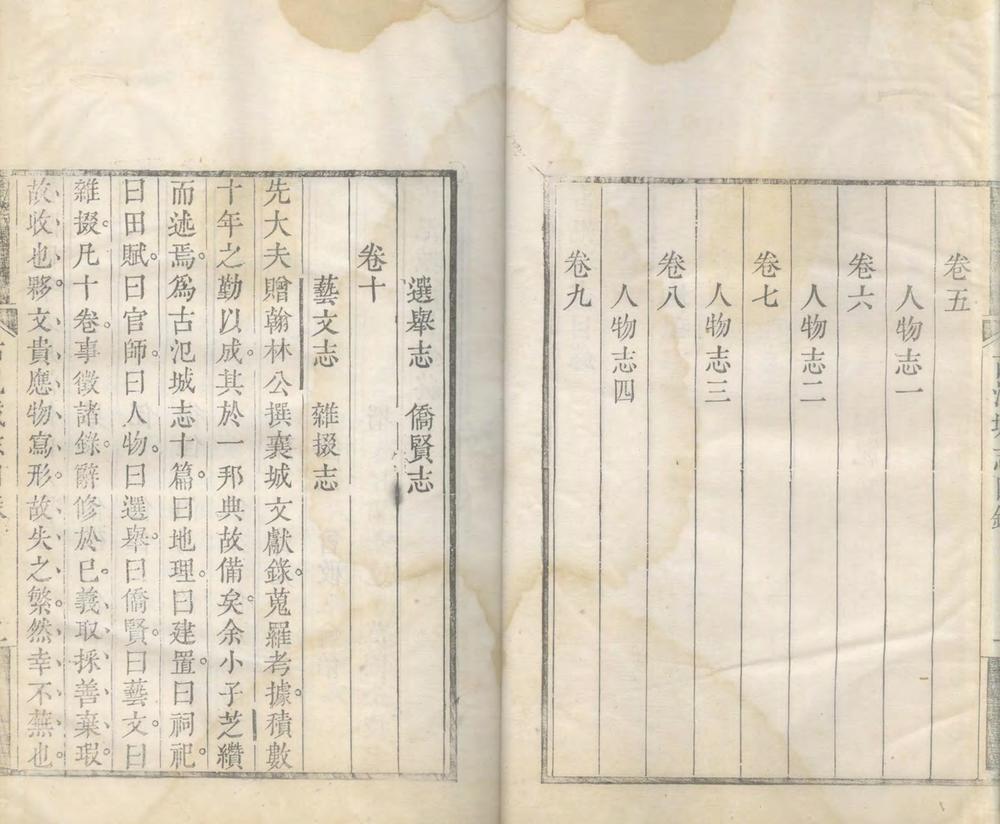 卷五
人物志一
卷六
人物志二
卷七
人物志三
卷八
人物志四
卷九
選舉志 僑賢志
卷十
藝文志 雜掇志
先大夫贈翰林公撰襄城文獻錄。蒐羅考據。積數
十年之勤以成。其於一邦典故備矣。余小子芝纘
而述焉。爲古氾城志十篇。曰地理。曰建置。曰祠祀。
曰田賦。曰官師。曰人物。曰選舉。曰僑賢。曰藝文。曰
雜掇。凡十卷。事徵諸錄。辭修於己。義取採善棄瑕。
故收也夥。文貴應物寫形。故失之繁。然幸不蕪也。